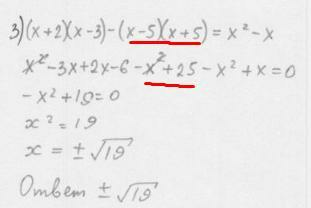 3) (x+2)(x-3)-(x-5)(x+5)=x²-x
x²-3x+2x-6-x²+25-x²+x=0
-x²+19=0
x²=19
x=±√19
Ответ ±√19